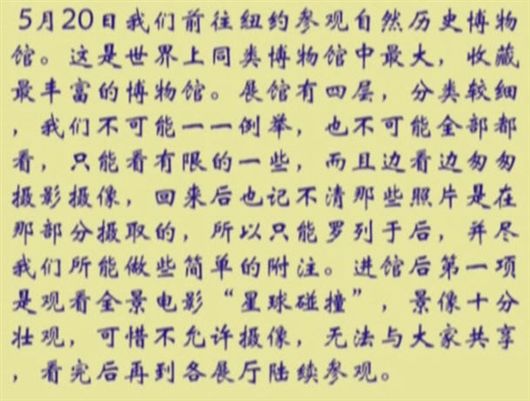 5月20日我们前往纽约参观自然历史博物
馆。这是世界上同类博物馆中最大，收藏
最丰富的博物馆。展馆有四层，分类较细
，我们不可能一一例举，也不可能全部都
看，只能看有限的一些，而且边看边匆匆
摄影摄像，回来后也记不清那些照片是在
那部分摄取的，所以只能罗列于后，并尽
我们所能做些简单的附注。进馆后第一项
是观看全景电影“星球碰撞”，景像十分
壮观，可惜不允许摄像，无法与大家共享
，看完后再到各展厅陆续参观。